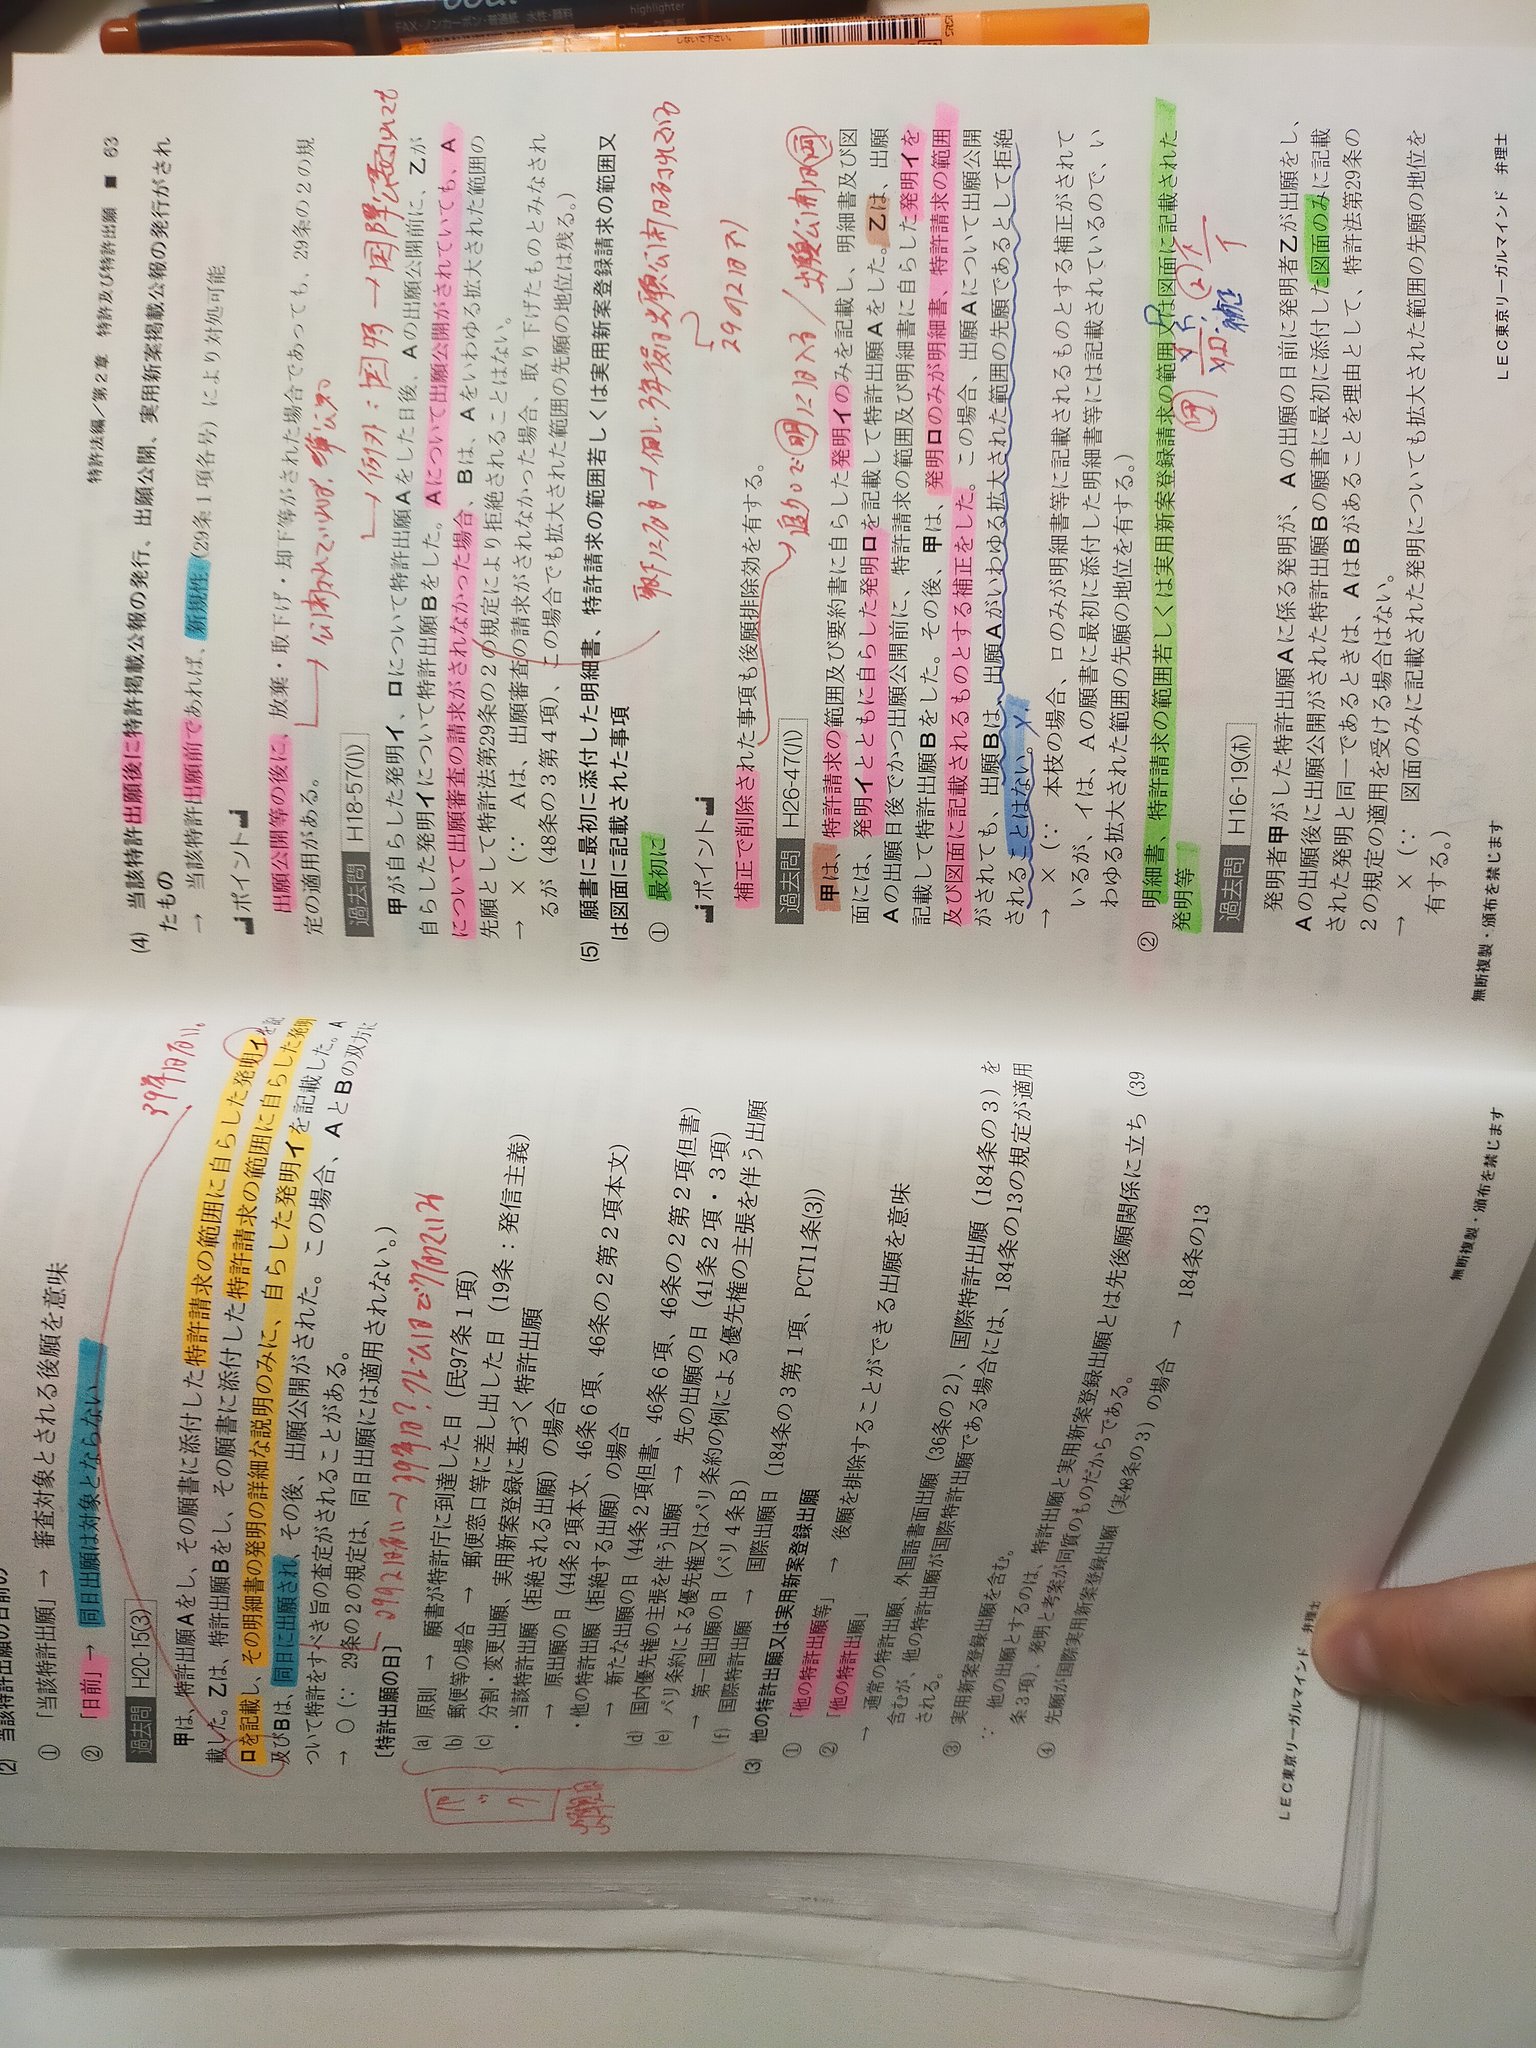 (2) 当該特許出願の日前の
① 「当該特許出願」→ 審査対象とされる後願を意味
② 「日前」→ 同日出願は対象とならない
39条1項
過去問 H20-15(3)
甲は、特許出願Aをし、その願書に添付した特許請求の範囲に自らした発明イを記
載した。乙は、特許出願Bをし、その願書に添付した特許請求の範囲に自らした発明
ロを記載し、その明細書の発明の詳細な説明のみに、自らした発明イを記載した。A
及びBは、同日に出願され、その後、出願公開がされた。この場合、AとBの双方に
ついて特許をすべき旨の査定がされることがある。
→ ○（∵ 29条の2の規定は、同日出願には適用されない。）
〔特許出願の日〕
(a) 原則 → 願書が特許庁に到達した日（民97条1項）
(b) 郵便等の場合 → 郵便窓口等に差し出した日（19条：発信主義）
(c) 分割・変更出願、実用新案登録に基づく特許出願
・当該特許出願（拒絶される出願）の場合
→ 原出願の日（44条2項本文、46条6項、46条の2第2項本文）
・他の特許出願（拒絶する出願）の場合
→ 新たな出願の日（44条2項但書、46条6項、46条の2第2項但書）
(d) 国内優先権の主張を伴う出願 → 先の出願の日（41条2項・3項）
(e) パリ条約による優先権又はパリ条約の例による優先権の主張を伴う出願
→ 第一国出願の日（パリ4条B）
(f) 国際特許出願 → 国際出願日（184条の3第1項、PCT11条(3)）
(3) 他の特許出願又は実用新案登録出願
① 「他の特許出願等」
② 「他の特許出願」 → 後願を排除することができる出願を意味
→ 通常の特許出願、外国語書面出願（36条の2）、国際特許出願（184条の3）を
含むが、他の特許出願が国際特許出願である場合には、184条の13の規定が適用
される。
③ 実用新案登録出願を含む。
∵ 他の出願とするのは、特許出願と実用新案登録出願とは先後願関係に立ち（39
条3項）、発明と考案が同質のものだからである。
④ 先願が国際実用新案登録出願（実48条の3）の場合 → 184条の13
LEC東京リーガルマインド 弁理士
無断複製・頒布を禁じます
特許法編／第2章 特許及び特許出願 ■ 63
(4) 当該特許出願後に特許掲載公報の発行、出願公開、実用新案掲載公報の発行がされ
たもの
→ 当該特許出願前であれば、新規性（29条1項各号）により対処可能
ポイント
出願公開等の後に、放棄・取下げ・却下等がされた場合であっても、29条の2の規
定の適用がある。
過去問 H18-57(ハ)
甲が自らした発明イ、ロについて特許出願Aをした日後、Aの出願公開前に、乙が
自らした発明イについて特許出願Bをした。Aについて出願公開がされていても、A
について出願審査の請求がされなかった場合、Bは、Aをいわゆる拡大された範囲の
先願として特許法第29条の2の規定により拒絶されることはない。
→ ×（∵ Aは、出願審査の請求がされなかった場合、取り下げたものとみなされ
るが（48条の3第4項）、この場合でも拡大された範囲の先願の地位は残る。）
(5) 願書に最初に添付した明細書、特許請求の範囲若しくは実用新案登録請求の範囲又
は図面に記載された事項
① 最初に
ポイント
補正で削除された事項も後願排除効を有する。
過去問 H26-47(ハ)
甲は、特許請求の範囲及び要約書に自らした発明イのみを記載し、明細書及び図
面には、発明イとともに自らした発明ロを記載して特許出願Aをした。乙は、出願
Aの出願日後でかつ出願公開前に、特許請求の範囲及び明細書に自らした発明イを
記載して特許出願Bをした。その後、甲は、発明ロのみが明細書、特許請求の範囲
及び図面に記載されるものとする補正をした。この場合、出願Aについて出願公開
がされても、出願Bは、出願Aがいわゆる拡大された範囲の先願であるとして拒絶
されることはない。
→ ×（∵ 本枝の場合、ロのみが明細書等に記載されるものとする補正がされて
いるが、イは、Aの願書に最初に添付した明細書等には記載されているので、い
わゆる拡大された範囲の先願の地位を有する。）
② 明細書、特許請求の範囲若しくは実用新案登録請求の範囲又は図面に記載された
発明等
過去問 H16-19(ホ)
発明者甲がした特許出願Aに係る発明が、Aの出願の日前に発明者乙が出願をし、
Aの出願後に出願公開がされた特許出願Bの願書に最初に添付した図面のみに記載
された発明と同一であるときは、AはBがあることを理由として、特許法第29条の
2の規定の適用を受ける場合はない。
→ ×（∵ 図面のみに記載された発明についても拡大された範囲の先願の地位を
有する。）
無断複製・頒布を禁じます
LEC東京リーガルマインド 弁理士